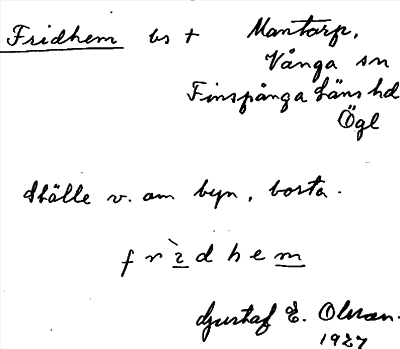 Fridhem bs + Mantorp,
Vånga sn
Finspånga läns hd
Ögl
Ställe v. om byn, borta.
frì̠dhem̠
Gustaf E. Olsson.
1927